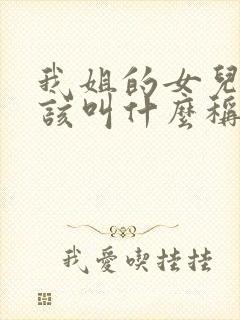 我姐的女兒
該叫什麼稱
我愛喫掛掛